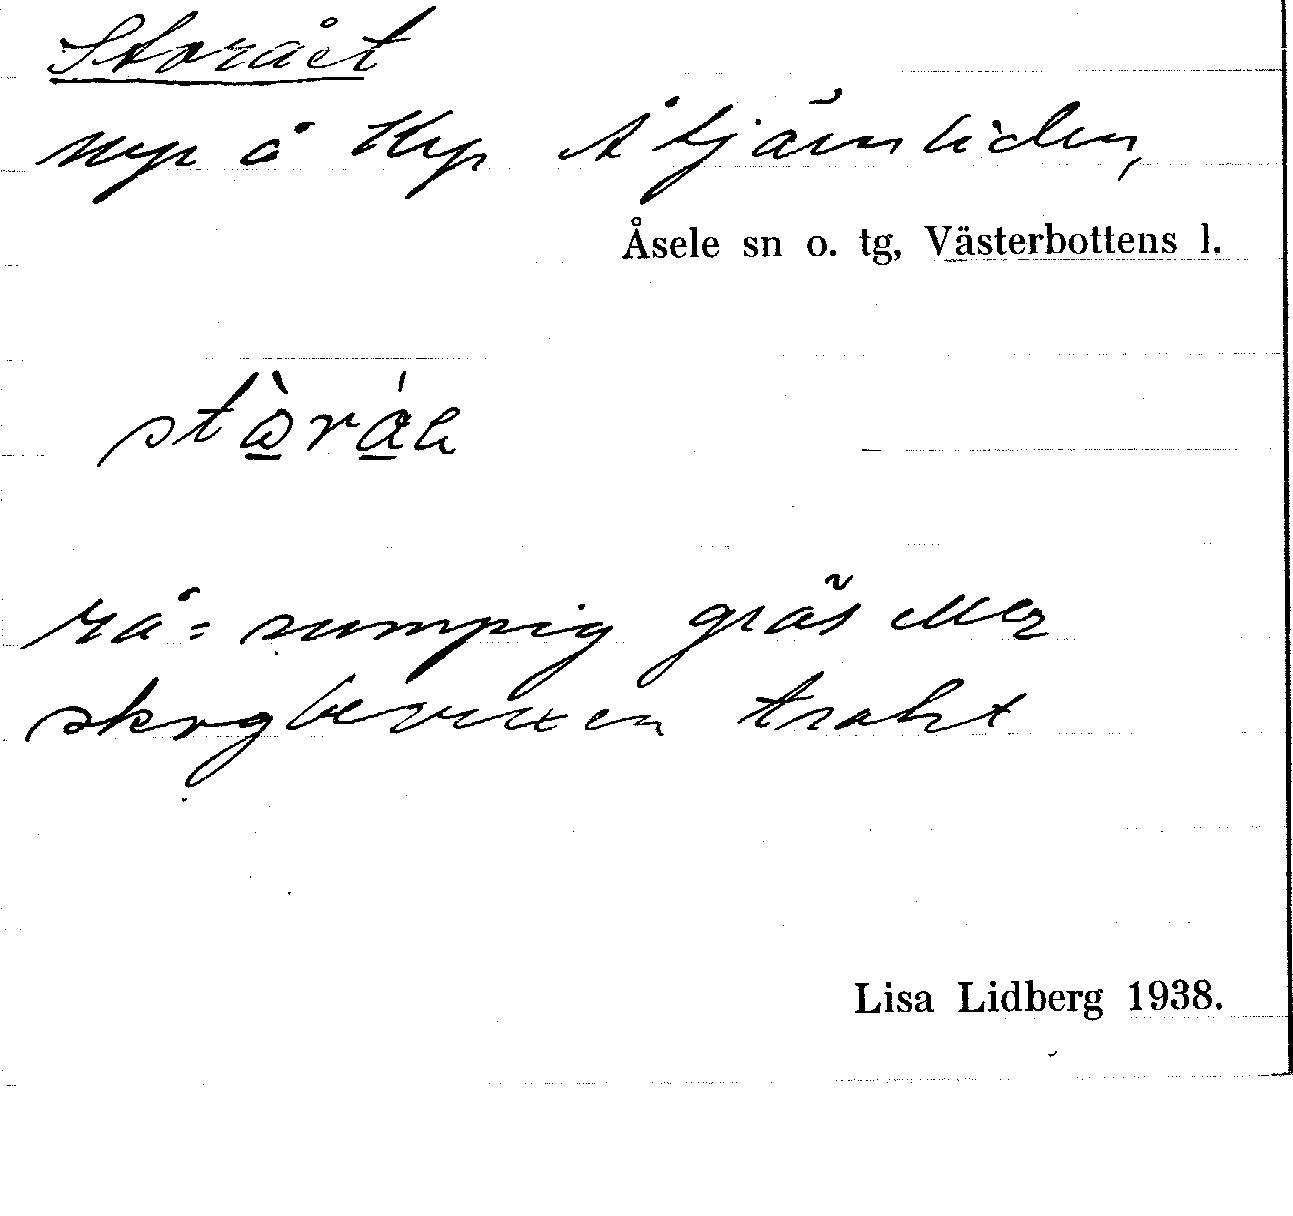 Storået
myr å Hyp Åtjärnliden,
Åsele sn o. tg, Västerbottens l.
rå = sumpig gräs eller
skogbevuxen trakt
Lisa Lidberg 1938.